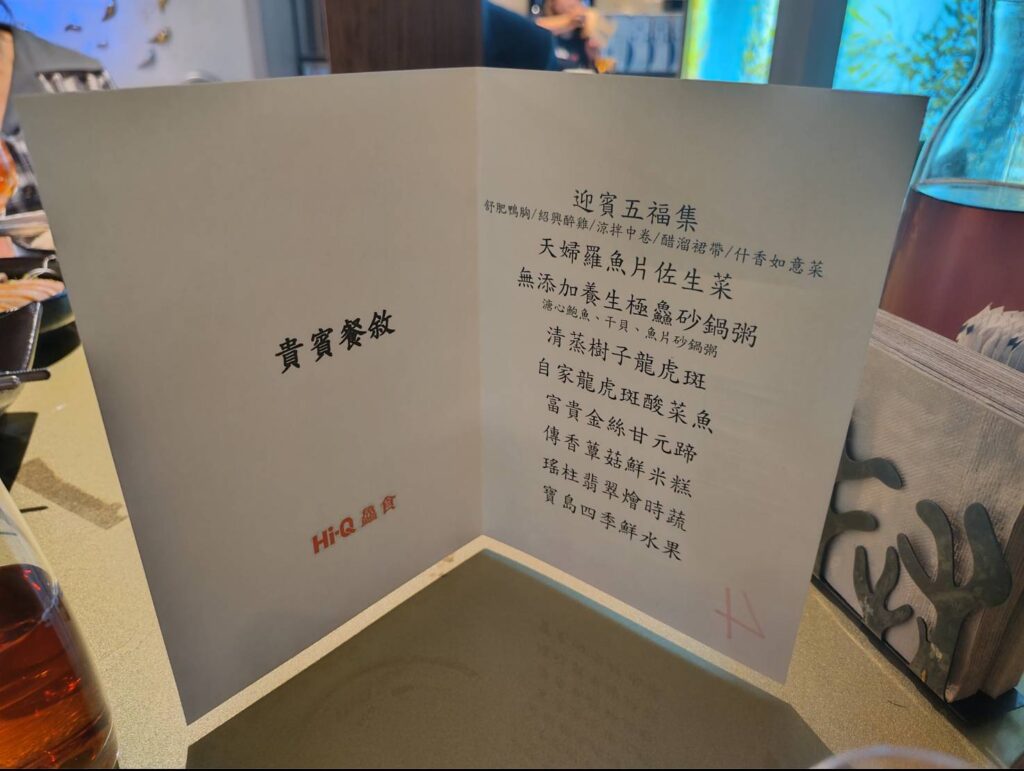 貴賓餐敘
Hi-Q 鱻食
迎賓五福集
舒肥鴨胸/紹興醉雞/涼拌中卷/醋溜裙帶/什香如意菜
天婦羅魚片佐生菜
無添加養生極鱻砂鍋粥
溏心鮑魚、干貝、魚片砂鍋粥
清蒸樹子龍虎斑
自家龍虎斑酸菜魚
富貴金絲甘元蹄
傳香蕈菇鮮米糕
瑤柱翡翠燴時蔬
寶島四季鮮水果
4